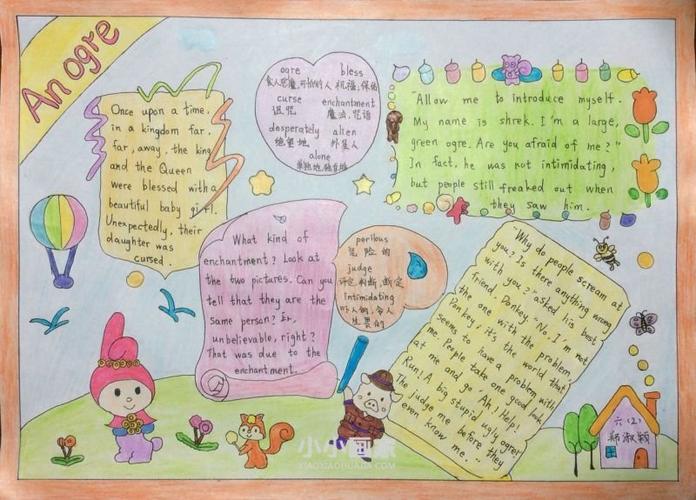 An ogre
Once upon a time,
in a kingdom far,
far, away. the king
and the Queen
were blessed with a
beautiful baby girl.
Unexpectedly, their
daughter was
cursed.
ogre bless
食人恶魔,可怕的人 祝福,保佑
curse enchantment
诅咒 魔法,咒语
desperately alien
绝望地 外星人
alone
单独地,独自地
"Allow me to introduce myself.
My name is shrek. I'm a large,
green ogre. Are you afraid of me?"
In fact, he was not intimidating,
but people still freaked out when
they saw him.
What kind of
enchantment? Look at
the two pictures. Can you
tell that they are the
same person?
unbelievable, right?
That was due to the
enchantment.
perilous
危险的
judge
评定,判断,断定
intimidating
吓人的,令人
生畏的
"Why do people scream at
you? Is there anything wrong
with you?" asked his best
friend, Donkey. "No, I'm not
the one with the problem,
Donkey, it's the world that
seems to have a problem with
me. People take one good look
at me and go. Ah! Help!
Run! A big stupid ugly ogre!"
The judge me before they
even know me.
六(2)
郑淑颖
小小画家
XIAOXIAOHUAJIA.COM